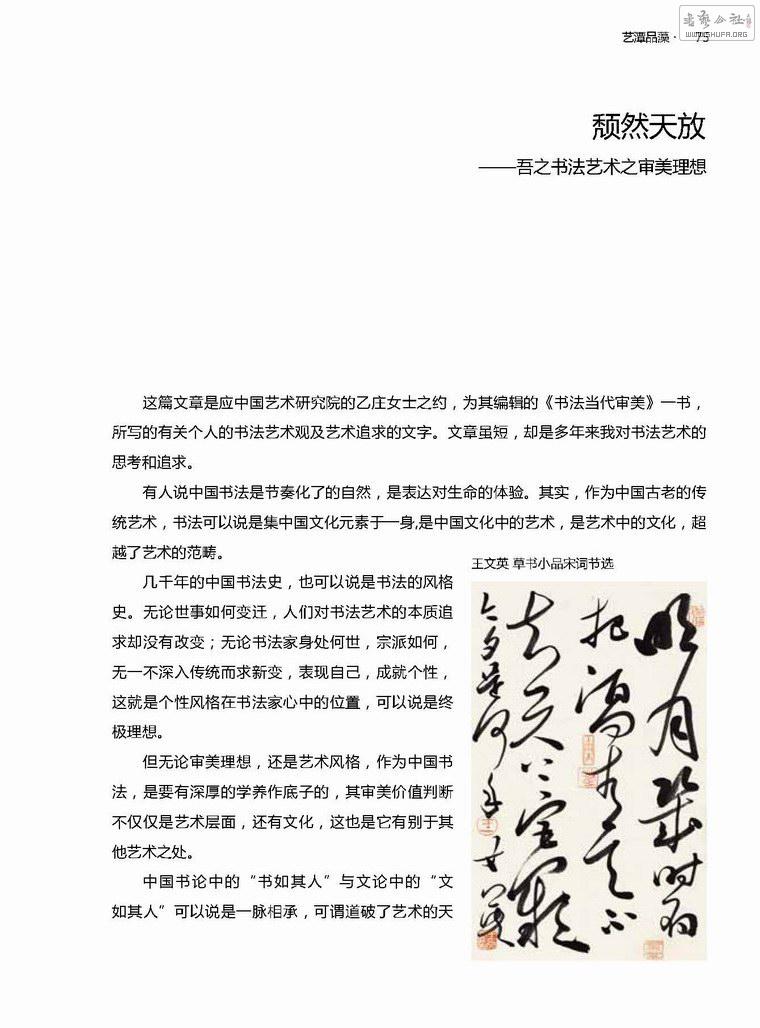 书艺公社
WWW.SHUFA.ORG
艺潭品藻· 75
颓然天放
——吾之书法艺术之审美理想
这篇文章是应中国艺术研究院的乙庄女士之约，为其编辑的《书法当代审美》一书，
所写的有关个人的书法艺术观及艺术追求的文字。文章虽短，却是多年来我对书法艺术的
思考和追求。
有人说中国书法是节奏化了的自然，是表达对生命的体验。其实，作为中国古老的传
统艺术，书法可以说是集中国文化元素于一身,是中国文化中的艺术，是艺术中的文化，超
越了艺术的范畴。
几千年的中国书法史，也可以说是书法的风格
史。无论世事如何变迁，人们对书法艺术的本质追
求却没有改变；无论书法家身处何世，宗派如何，
无一不深入传统而求新变，表现自己，成就个性，
这就是个性风格在书法家心中的位置，可以说是终
极理想。
但无论审美理想，还是艺术风格，作为中国书
法，是要有深厚的学养作底子的，其审美价值判断
不仅仅是艺术层面，还有文化，这也是它有别于其
他艺术之处。
中国书论中的“书如其人”与文论中的“文
如其人”可以说是一脉相承，可谓道破了艺术的天
王文英 草书小品宋词节选
明月几时有
把酒问青天不
知天上宫阙
今夕是何年 文英